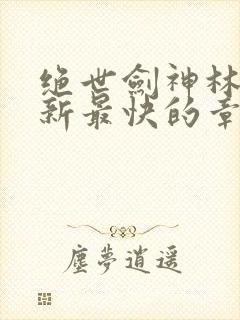 绝世劍神林
新最快的章
塵夢逍遥